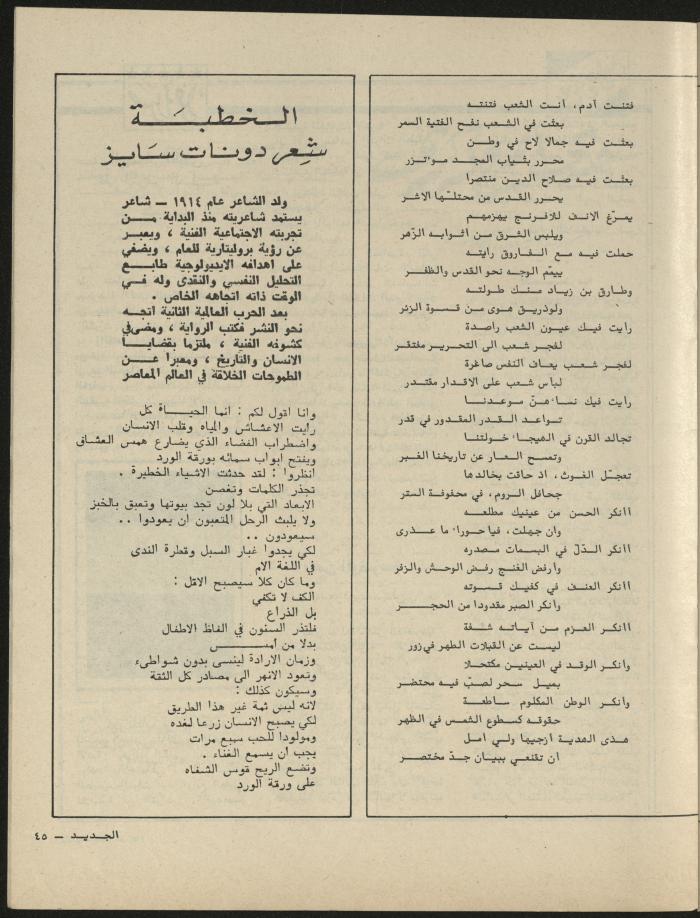 فتنت آدم، أنت الشعب فتنته
بعثت في الشعب نفح الفتية السمر
بعثت فيه جمالا لاح في وطن
محرر بثياب المجد مؤتزر
بعثت فيه صلاح الدين منتصرا
يحرر القدس من محتلّها الاشر
يمرّغ الانف للافرنج يهزمهم
ويلبس الشرق من أثوابه الزهر
حملت فيه مع الفاروق رايته
ييمّم الوجه نحو القدس والظفر
وطارق بن زياد منك طولته
ولوذريق هوى من قسوة الزئر
رأيت فيك عيون الشعب راصدة
لفجر شعب الى التحرير مفتقر
لفجر شعب يعاف النفس صاغرة
لبأس شعب على الاقدار مقتدر
رأيت فيك نساء هنّ موعدنا
تواعد القدر المقدور في قدر
تجالد القرن في الهيجاء خولتنا
وتمسح العار عن تاريخنا الغبر
تعجّل الغوث، اذ حاقت بخالدها
جحافل الروم، في محفوفة الستر
أأنكر الحسن من عينيك مطلعه
وان جهلت، فيا حوراء ما عذرى
أأنكر الدلّ في البسمات مصدره
وأرفض الغنج رفض الوحش والزفر
أأنكر العنف في كفيك قسوته
وأنكر الصبر مقدودا من الحجر
أأنكر العزم من آياته شفة
ليست عن القبلات الطهر في زور
وأنكر الوقد في العينين مكتحلا
بميل سحر لصبّ فيه محتضر
وأنكر الوطن المكلوم ساطعة
حقوقه كسطوع الشمس في الظهر
هذى الهدية أزجيها ولي أمل
أن تقنعي ببيان جدّ مختصر
الخطبة
شعر دونات سايز
ولد الشاعر عام ١٩١٤ — شاعر
يستمد شاعريته منذ البداية من
تجربته الاجتماعية الفنية ، ويعبر
عن رؤية بروليتارية للعام ، ويضفي
على اهدافه الايديولوجية طابع
التحليل النفسي والنقدى وله في
الوقت ذاته اتجاهه الخاص .
بعد الحرب العالمية الثانية اتجه
نحو النشر فكتب الرواية ، ومضى في
كشوفه الفنية ، ملتزما بقضايا
الانسان والتاريخ ، ومعبرا عن
الطموحات الخلاقة في العالم المعاصر
وانا اقول لكم : انما الحياة كل
رايت الاعشاش والمياه وقلب الانسان
واضطراب الفضاء الذي يضارع همس العشاق
ويفتح ابواب سمائه بورقة الورد
انظروا : لقد حدثت الاشياء الخطيرة .
تجذر الكلمات وتغصن
الابعاد التي بلا لون تجد بيوتها وتعبق بالخبز
ولا يلبث الرحل المتعبون ان يعودوا ..
سيعودون ..
لكي يجدوا غبار السبل وقطرة الندى
في اللغة الام
وما كان كلا سيصبح الاقل :
الكف لا تكفي
بل الذراع
فلتذر السنون في الفاظ الاطفال
بدلا من أمس
وزمان الارادة لينسى بدون شواطىء
وتعود الانهر الى مصادر كل الثقة
وسيكون كذلك :
لانه ليس ثمة غير هذا الطريق
لكي يصبح الانسان زرعا لغده
ومولودا للحب سبع مرات
يجب أن يسمع الغناء .
وتضع الريح قوس الشفاه
على ورقة الورد
الجديد — ٤٥